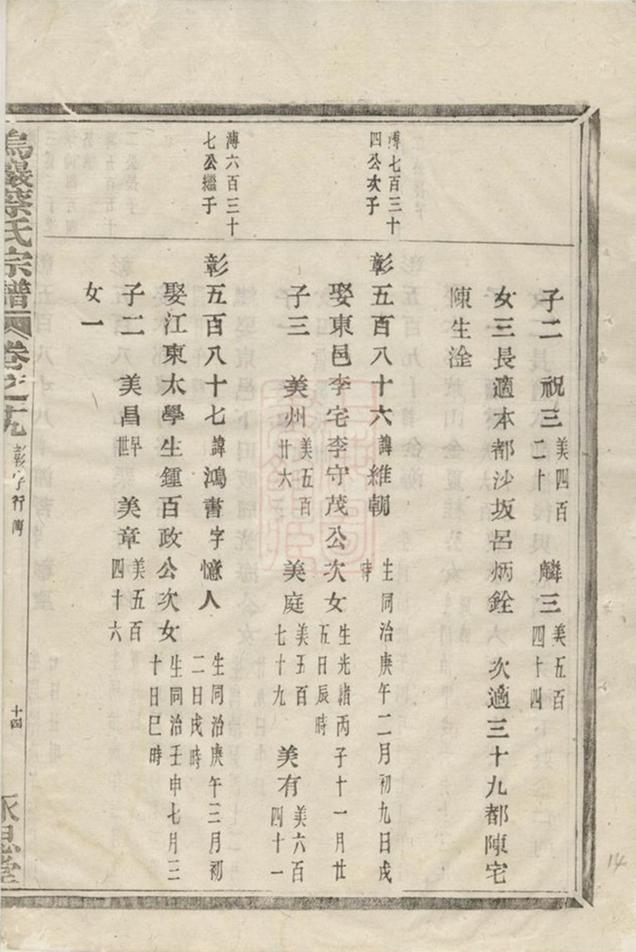 子二 祝三 美四百二十 麟三 美五百四十四
女三長適本都沙坂呂炳銓 次適三十九都陳宅
陳生淦
溥七百三十四公次子
彰五百八十六 諱維朝 生同治庚午二月初九日戌時
娶東邑李宅李守茂公次女 生光緒丙子十一月廿五日辰時
子三 美州 美五百廿六 美庭 美五百七十九 美有 美六百四十一
溥六百三十七公繼子
彰五百八十七 諱鴻書字憶人 生同治庚午三月初二日戌時
娶江東太學生鍾百政公次女 生同治壬申七月三十日巳時
子二 美昌 早世 美章 美五百四十六
女一
蔡氏宗譜 卷之九 彰字行傳 十四
14